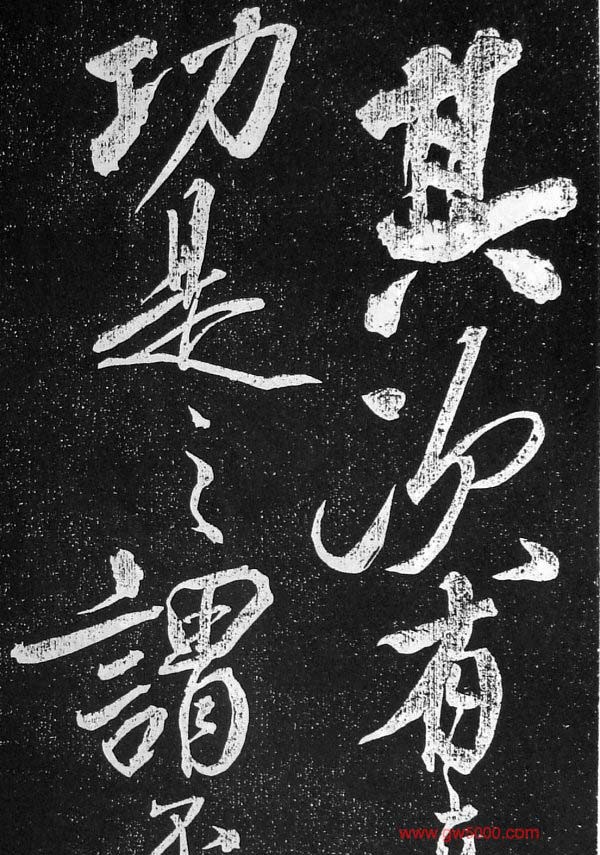 其次有立
功是之謂不
www.gw5000.com